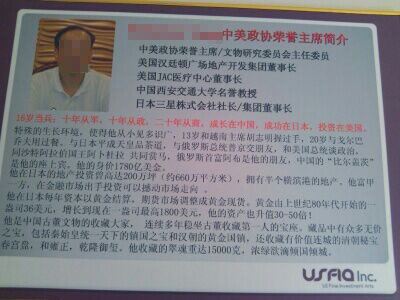 中美政协荣誉主席简介
中美政协荣誉主席/文物研究委员会主任委员
美国汉廷顿广场地产开发集团董事长
美国JAC医疗中心董事长
中国西安交通大学名誉教授
日本三星株式会社社长/集团董事长
16岁当兵：十年从军，十年从政，二十年从商，成长在中国，成功在日本，投资在美国。
特殊的生长环境，使得他从小见多识广，13岁和越南主席胡志明握过手，20岁与戈尔巴
乔夫用过餐。与日本平成天皇品茶道，与俄罗斯总统普京交朋友，和美国总统谈政治，
同沙特阿拉伯国王阿卜杜拉 共同赏马，俄罗斯首富阿布是他的朋友，中国的“比尔盖茨”
是他的座上宾。他的身价约780亿美金。
他在日本的地产投资曾高达200万坪（约660万平方米），拥有半个横滨港的地产。他富甲
一方，在金融市场出手投资可以撼动市场走向 。
他在日本每年资本以黄金结算。期货市场调整成黄金现货。黄金由上世纪80年代开始的一
盎司36美元，增长到现在一盎司最高1800美元，他的资产也升值30-50倍！
他是中国古董文物的收藏大家， 连续多年稳坐古董收藏第一人的宝座。藏品中有众多无价
之宝，包括秦始皇统一天下的镇国之宝和汉朝的黄金国镇，还收藏有价值连城的清朝秘宝
春宫盘，和雍正，乾隆御玺。他收藏的翠魂重达15000克，浓绿欲滴倾国倾城。
USFIA Inc.
US Fine Investment Arts